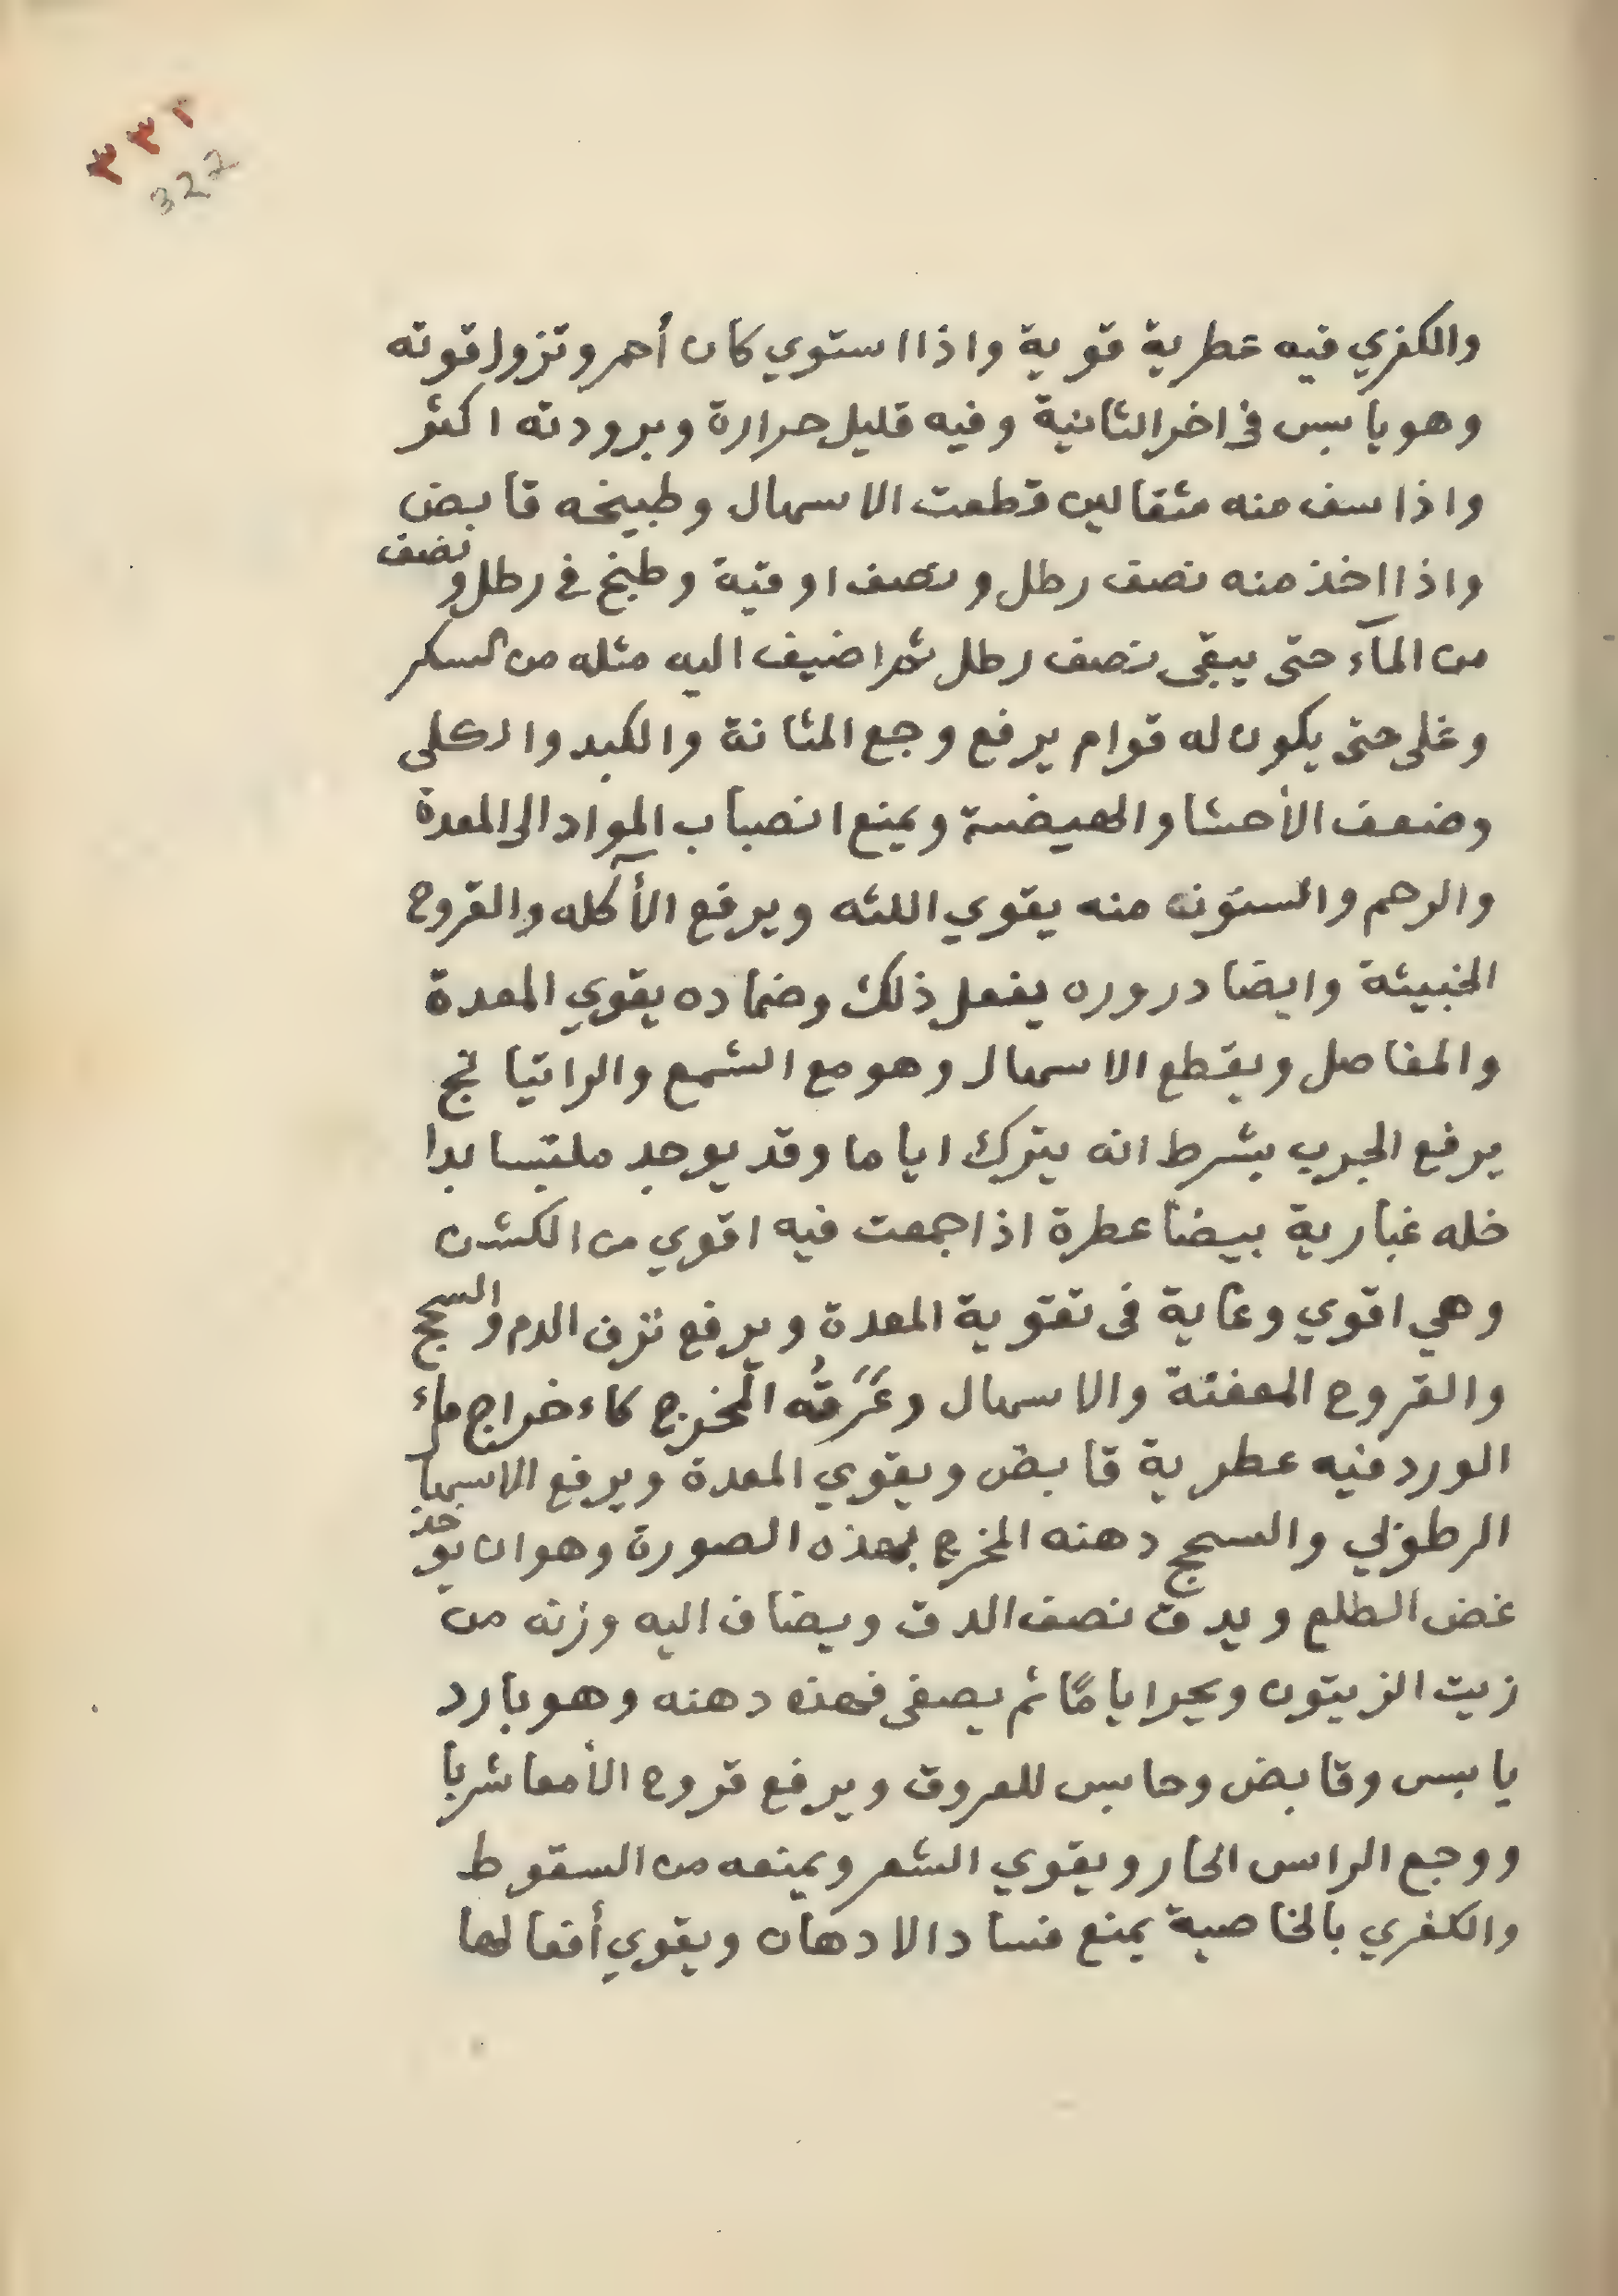 ٣٣١
322
والكفري فيه عطرية قوية واذا استوي كان أحمر وتزول قوته
وهو يابس فى اخر الثانية وفيه قليل حرارة وبرودته اكثر
واذا سف منه مثقالين قطعت الاسهال وطبيخه قابض
واذا اخذ منه نصف رطل ونصف اوقية وطبخ في رطل ونصف
من المآء حتى يبقى نصف رطل ثم اضيف اليه مثله من السكر
وغلى حتى يكون له قوام يرفع وجع المثانة والكبد والكلى
وضعف الأحشا والهيضة ويمنع انصباب المواد الى المعدة
والرحم والسنون منه يقوي اللثه ويرفع الأكله والقروح
الخبيثة وايضا دروره يفعل ذلك وضماده يقوي المعدة
والمفاصل ويقطع الاسهال وهو مع الشمع والراتيانج
يرفع الجرب بشرط انه يترك اياما وقد يوجد ملتبسا بدا
خله غبارية بيضا عطرة اذا جمعت فيه اقوي من الكشن
وهي اقوي وغاية فى تقوية المعدة ويرفع نزف الدم والسحج
والقروح المعفنة والاسهال وعَرَقُه المخرج كاءخراج ماء
الورد فيه عطرية قابض ويقوي المعدة ويرفع الاسهال
الرطوبي والسحج دهنه المخرج بهذه الصورة وهو ان يوخذ
غض الطلع ويدق نصف الدق ويضاف اليه وزنه من
زيت الزيتون ويحرا يامًا ثم يصفى فهذه دهنه وهو بارد
يابس وقابض وحابس للعروق ويرفع قروح الأمعا شربا
ووجع الراس الحار ويقوي الشعر ويمنعه من السقوط
والكفري بالخاصية يمنع فساد الادهان ويقوي أفعالها